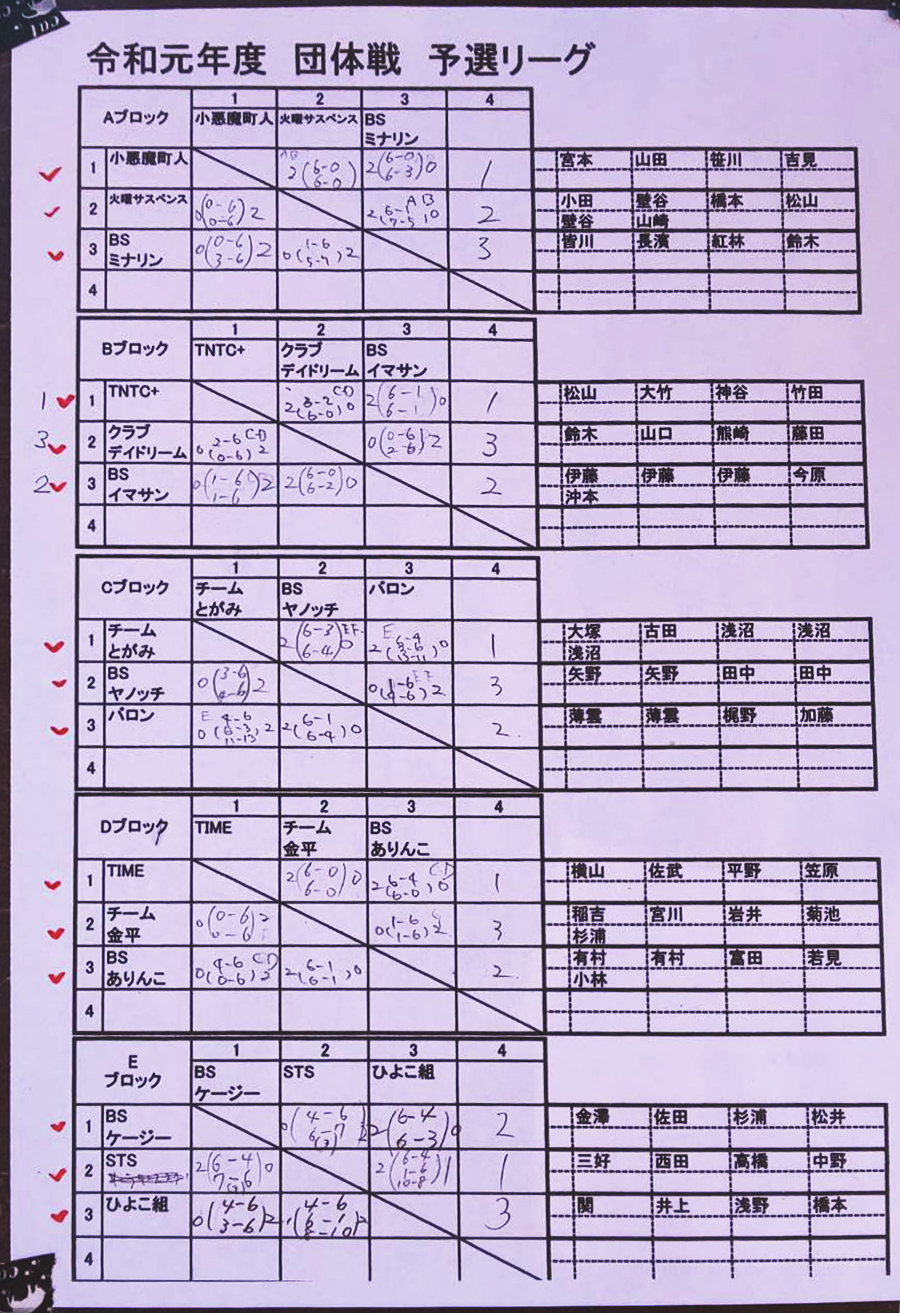 令和元年度 団体戦 予選リーグ
1 2 3 4
Aブロック 小悪魔町人 火曜サスペンス BS
ミナリン
1 小悪魔町人 2(6-0 6-0) 2(6-0 6-3)0 1 宮本 山田 笹川 吉見
2 火曜サスペンス 0(0-6 0-6)2 2 小田 壁谷 橋本 松山
壁谷 山崎
3 BS 0(0-6 3-6)2 3 皆川 長濱 紅林 鈴木
ミナリン
4
1 2 3 4
Bブロック TNTC+ クラブ BS
デイドリーム イマサン
1 1 TNTC+ 2(6-1 6-1)0 1 松山 大竹 神谷 竹田
3 2 クラブ 0(2-6 0-6)2 CD 0(0-6 2-6)2 3 鈴木 山口 熊崎 藤田
デイドリーム
2 3 BS 0(1-6 1-6)2 2(6-0 6-2)0 2 伊藤 伊藤 伊藤 今原
イマサン 沖本
4
1 2 3 4
Cブロック チーム BS バロン
とがみ ヤノッチ
1 チーム 2(6-3 6-4)0 EF 1 大塚 古田 浅沼 浅沼
とがみ 浅沼
2 BS 0(3-6 4-6)2 0(1-6 4-6)2 3 矢野 矢野 田中 田中
ヤノッチ
3 バロン E 0(4-6 6-3 11-13)2 2(6-1 6-4)0 2 薄雲 薄雲 梶野 加藤
4
1 2 3 4
Dブロック TIME チーム BS
金平 ありんこ
1 TIME 2(6-0 6-0)0 2(6-4 6-0)0 CD 1 横山 佐武 平野 笠原
2 チーム 0(0-6 0-6)2 0(1-6 1-6)2 3 稲吉 宮川 岩井 菊池
金平 杉浦
3 BS 0(4-6 0-6)2 CD 2(6-1 6-1)0 2 有村 有村 富田 若見
ありんこ 小林
4
1 2 3 4
E BS STS ひよこ組
ブロック ケージー
1 BS 0(4-6 6-7 (3))2 2(6-4 6-3)0 2 金澤 佐田 杉浦 松井
ケージー
2 STS 2(6-4 7-6 (3))0 2(6-4 1-6 10-8)1 1 三好 西田 高橋 中野
3 ひよこ組 0(4-6 3-6)2 3 関 井上 浅野 橋本
4